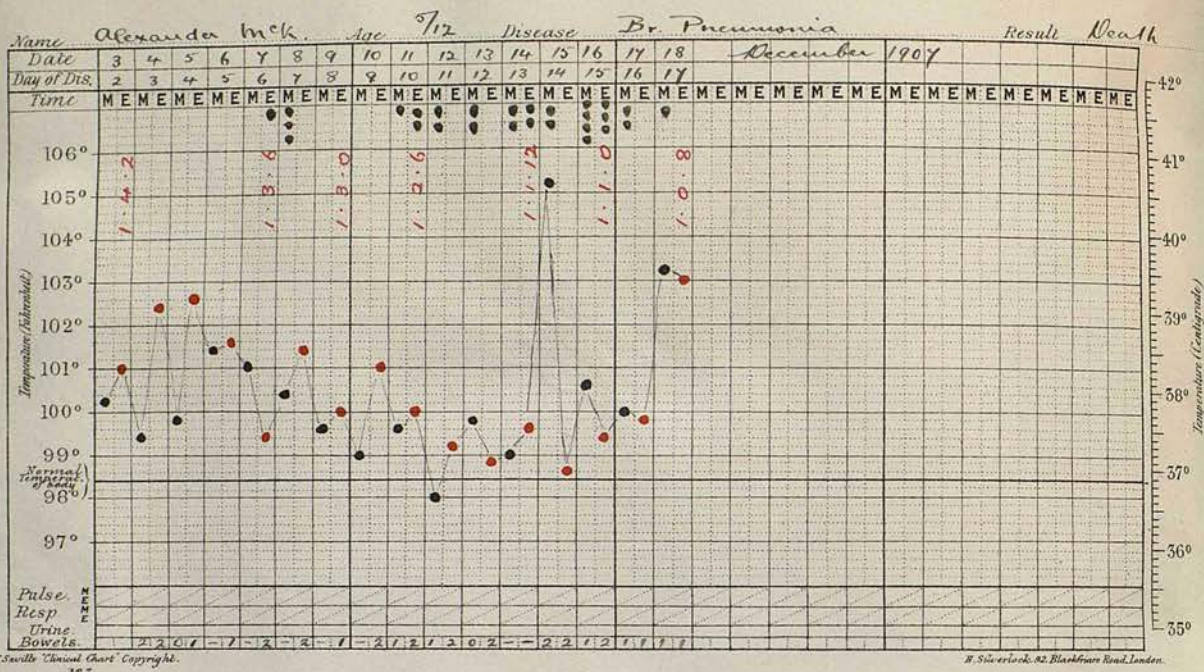 Name Alexander McK. Age 5/12 Disease Br. Pneumonia Result Death
Date 3 4 5 6 7 8 9 10 11 12 13 14 15 16 17 18 December 1907
Day of Dis. 2 3 4 5 6 7 8 9 10 11 12 13 14 15 16 17
Time M E M E M E M E M E M E M E M E M E M E M E M E M E M E M E M E M E M E M E M E M E M E M E M E M E M E M E M E
42°
1.4.2 1.3.6 1.3.0 1.2.6 1.1.12 1.1.0 1.0.8
106° 41°
105°
104° 40°
103°
Temperature (Fahrenheit) Temperature (Centigrade)
102° 39°
101°
100° 38°
99°
Normal Temperat. of body 37°
98°
97°
36°
Pulse. M E
Resp M E
Urine.
Bowels. 2 2 0 1 - 1 - 2 - 2 - 1 - 2 1 2 1 2 0 2 - - 2 2 1 2 1 1 1 1
35°
Saville "Clinical Chart" Copyright. H. Silverlock. 92 Blackfriars Road. London.